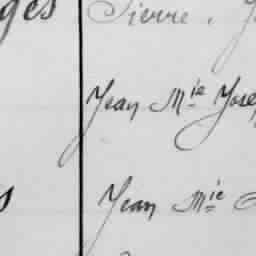 ges Pierre, J
Jean Mie Jose
s Jean Mie